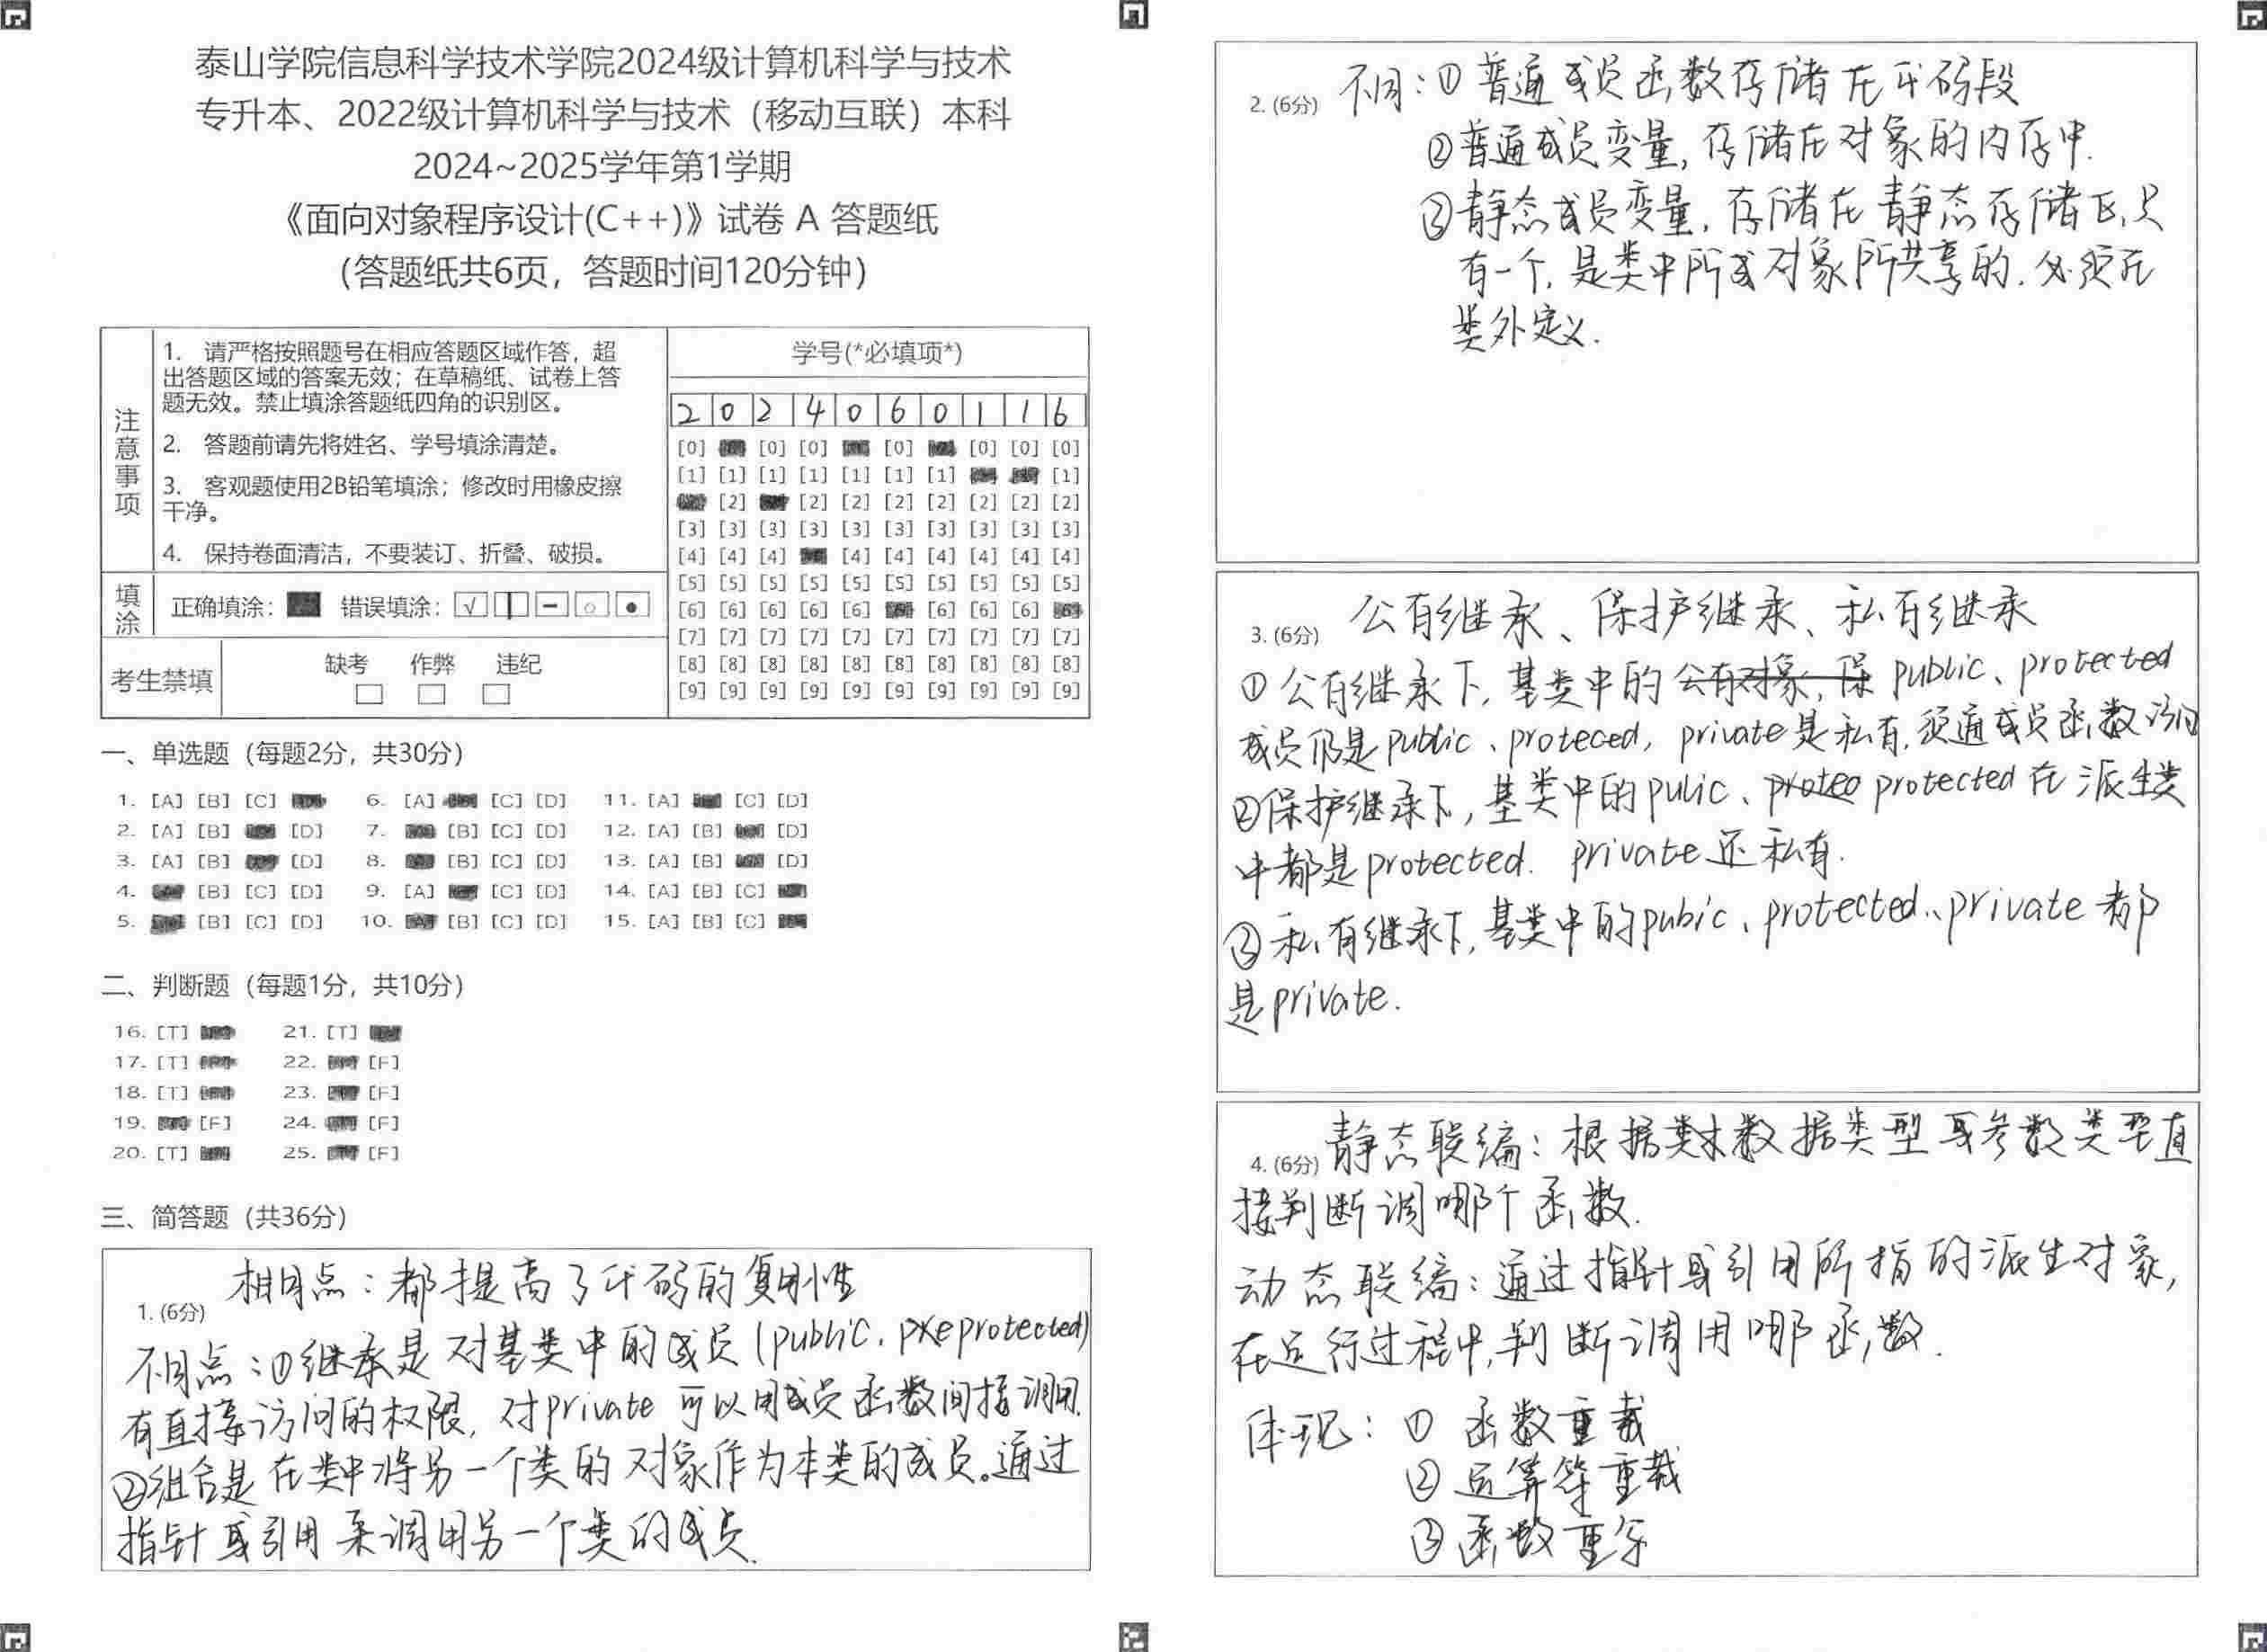 泰山学院信息科学技术学院2024级计算机科学与技术
专升本、2022级计算机科学与技术（移动互联）本科
2024~2025学年第1学期
《面向对象程序设计(C++)》试卷 A 答题纸
（答题纸共6页，答题时间120分钟）
注意事项
1. 请严格按照题号在相应答题区域作答，超
出答题区域的答案无效；在草稿纸、试卷上答
题无效。禁止填涂答题纸四角的识别区。
2. 答题前请先将姓名、学号填涂清楚。
3. 客观题使用2B铅笔填涂；修改时用橡皮擦
干净。
4. 保持卷面清洁，不要装订、折叠、破损。
填涂 正确填涂： 错误填涂：
考生禁填 缺考 作弊 违纪
学号(*必填项*)
2 0 2 4 0 6 0 1 1 6
[0] [0] [0] [0] [0] [0] [0]
[1] [1] [1] [1] [1] [1] [1] [1]
[2] [2] [2] [2] [2] [2] [2] [2]
[3] [3] [3] [3] [3] [3] [3] [3] [3] [3]
[4] [4] [4] [4] [4] [4] [4] [4] [4]
[5] [5] [5] [5] [5] [5] [5] [5] [5] [5]
[6] [6] [6] [6] [6] [6] [6] [6]
[7] [7] [7] [7] [7] [7] [7] [7] [7] [7]
[8] [8] [8] [8] [8] [8] [8] [8] [8] [8]
[9] [9] [9] [9] [9] [9] [9] [9] [9] [9]
一、单选题（每题2分，共30分）
1. [A] [B] [C] 6. [A] [C] [D] 11. [A] [C] [D]
2. [A] [B] [D] 7. [B] [C] [D] 12. [A] [B] [D]
3. [A] [B] [D] 8. [B] [C] [D] 13. [A] [B] [D]
4. [B] [C] [D] 9. [A] [C] [D] 14. [A] [B] [C]
5. [B] [C] [D] 10. [B] [C] [D] 15. [A] [B] [C]
二、判断题（每题1分，共10分）
16. [T] 21. [T]
17. [T] 22. [F]
18. [T] 23. [F]
19. [F] 24. [F]
20. [T] 25. [F]
三、简答题（共36分）
1. (6分) 相同点：都提高了代码的复用性
不同点：①继承是对基类中的成员(public. protected)
有直接访问的权限，对private可以用成员函数间接调用.
②组合是在类中将另一个类的对象作为本类的成员。通过
指针或引用来调用另一个类的成员.
2. (6分) 不同：①普通成员函数存储在代码段
②普通成员变量，存储在对象的内存中.
③静态成员变量，存储在静态存储区，只
有一个，是类中所或对象所共享的. 必须在
类外定义.
3. (6分) 公有继承、保护继承、私有继承
①公有继承下，基类中的公有对象，保 public、protected
成员仍是public、proteced, private是私有，须通成员函数访问
②保护继承下，基类中的pulic、proteo protected在派生类
中都是protected. private还私有.
③私有继承下，基类中的pubic、protected、private都
是private.
4. (6分) 静态联编：根据数据类型或参数类型直
接判断调哪个函数.
动态联编：通过指针或引用所指的派生对象，
在运行过程中，判断调用哪函数.
体现：① 函数重载
② 运算符重载
③ 函数重写